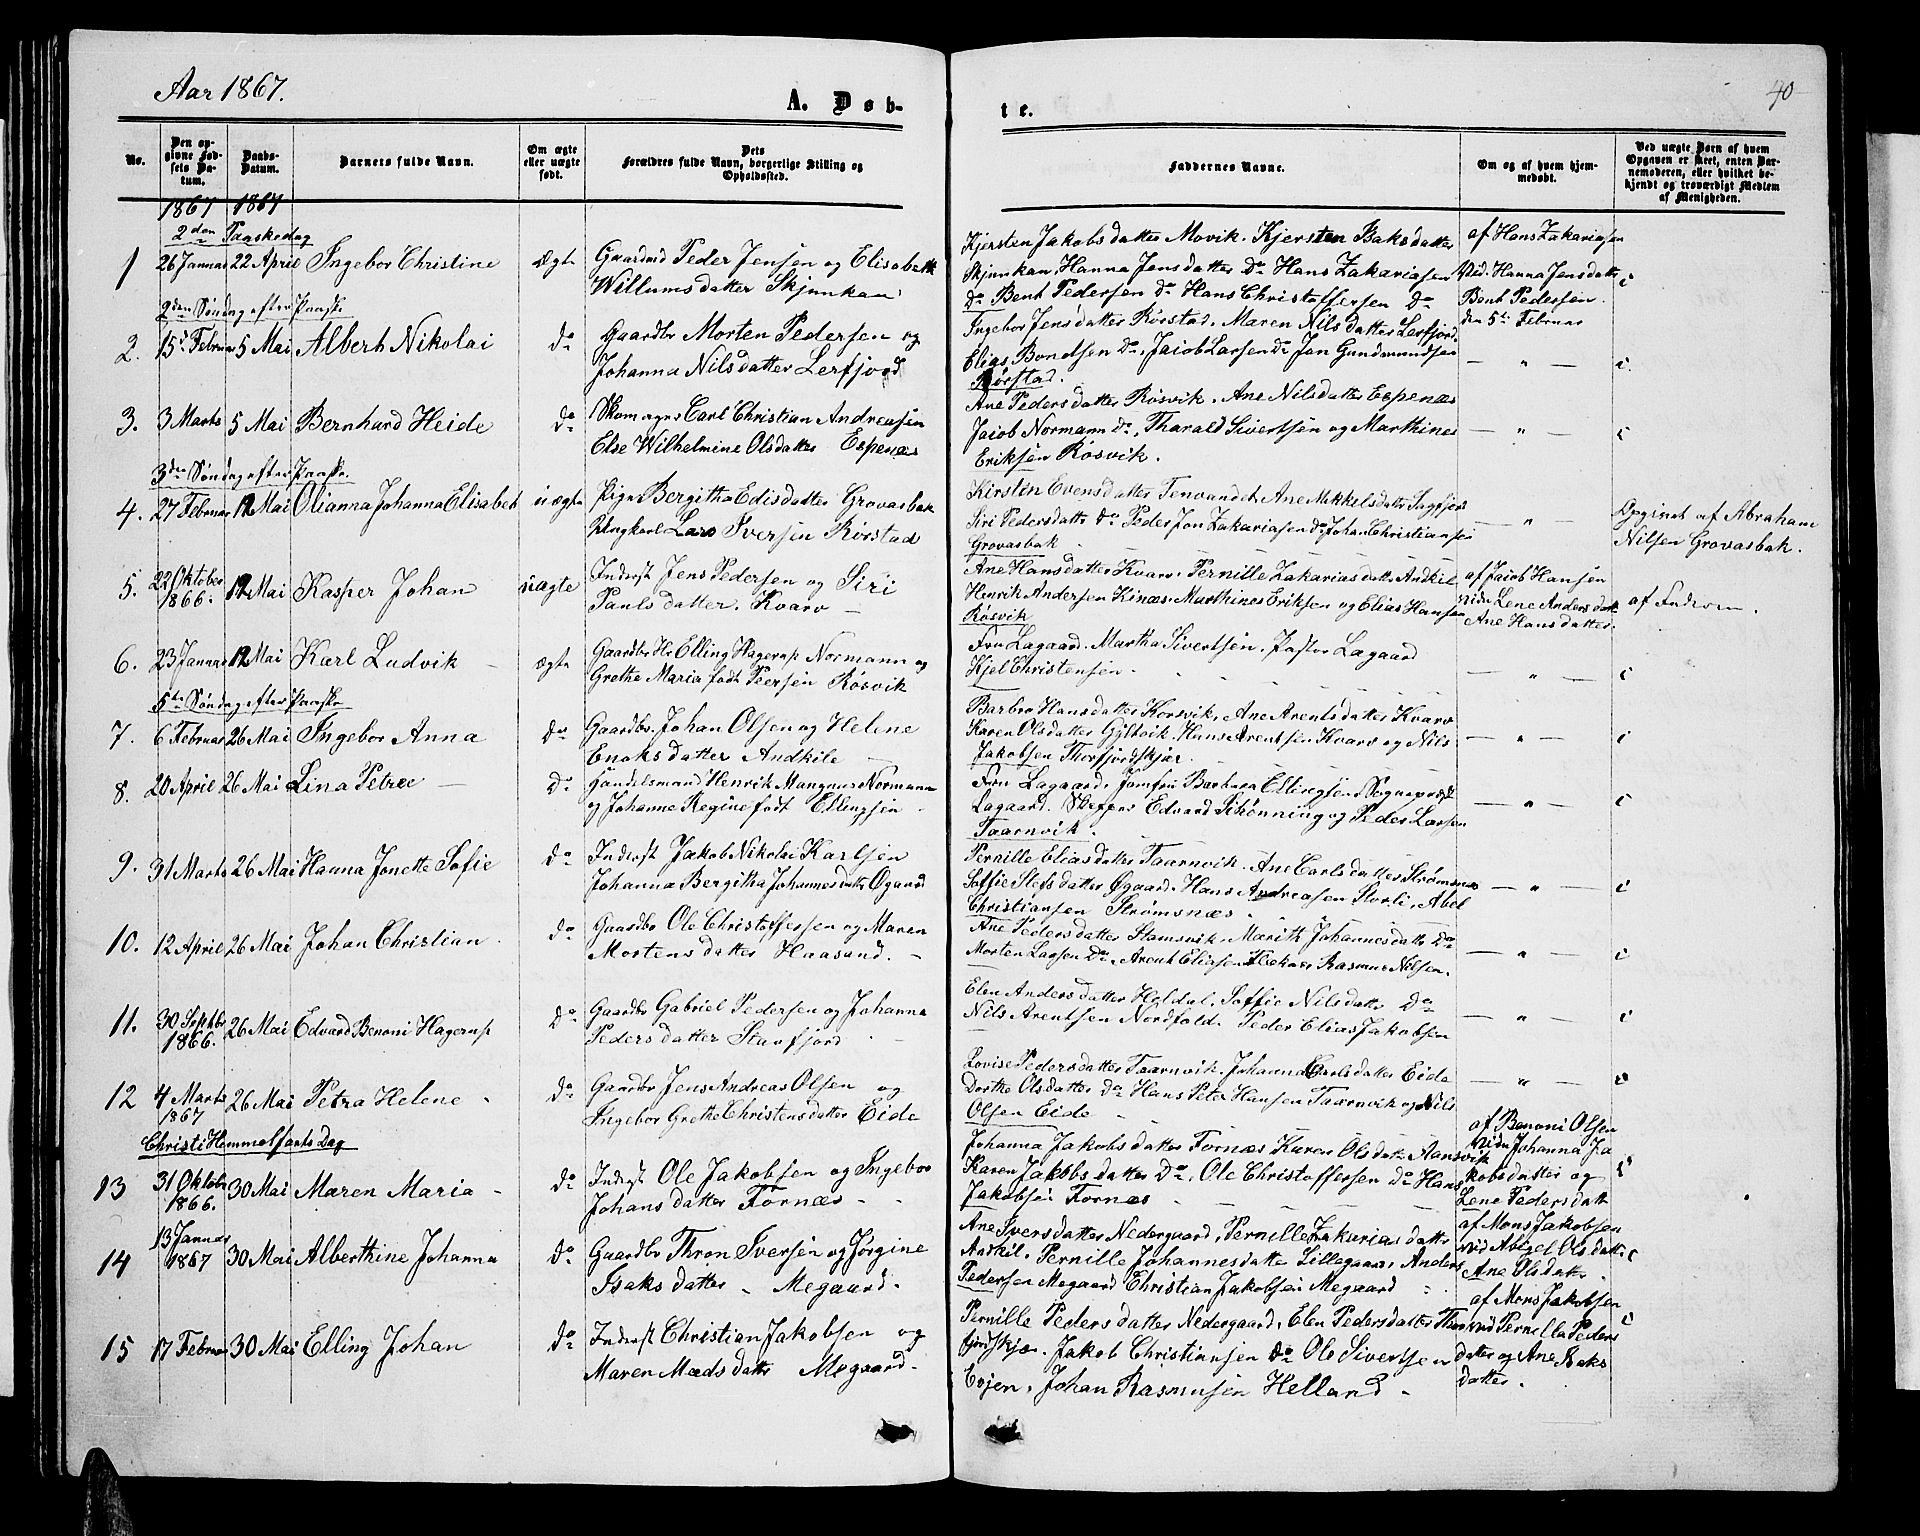 Aar 1867.
A. Døb-
te.
40
No.
Den opgivne Fødsels Datum.
Daabs-Datum.
Barnets fulde Navn.
Om ægte eller uægte født.
Dets Forældres fulde Navn, borgerlige Stilling og Opholdssted.
Faddernes Navne.
Om og af hvem hjemmedøbt.
Ved uægte Børn af hvem Opgaven er skeet, enten Barnemoderen, eller hvilket bekjendt og troværdigt Medlem af Menigheden.
1867 1867
2den Paaskedag
1 26 Januar 22 April Ingebor Christine ægte Gaardmd Peder Jensen og Elisabeth
Willumsdatter Skjunkan
Kjersten Jakobsdatter Movik. Kjersten Baksdatter
Skjunkan, Hanna Jensdatter Do Hans Zakariasen
Do Bent Pedersen Do Hans Christoffersen Do
af Hans Zakariasen
Vid. Hanna Jensdatter
Bent Pedersen
den 5te Februar
2den Søndag efter Paaske
2. 15 Februar 5 Mai Albert Nikolai Do Gaardbr Morten Pedersen og
Johanna Nilsdatter Lerfjord
Ingebor Jensdatter Rørstad, Maren Nilsdatter Lerfjord,
Elias Bendtsen Do, Jacob Larsen Do Jon Gundmundsen
Rørstad.
— " —
3. 3 Marts 5 Mai Bernhard Heide Do Skomager Carl Christian Andreasen
Else Wilhelmine Olsdatter Espenæs
Ane Pedersdatter Røsvik. Ane Nilsdatter Espenæs
Jacob Normann Do, Tharald Sivertsen og Marthines
Eriksen Røsvik.
— " —
3die Søndag efter Paaske.
4. 27 Februar 12 Mai Olianna Johanna Elisabet uægte Pige Bergitha Edisdatter Grovasbak
Ungkarl Lars Iversen Rørstad
Kirsten Evensdatter Tenvandet, Ane Mikkelsdatter Sagfjord
Siri Pedersdatter Do Peder Jon Zakariasen Do Johan Christiansen
Grovasbak
— " —
Opginet af Abraham
Nilsen Grovasbak.
5. 22 Oktober 1866. 12 Mai Kasper Johan uægte Inderst Jens Pedersen og Siri
Paulsdatter. Kvarv —
Ane Hansdatter Kvarv, Pernille Zakariasdatter Andkil
Henrik Andersen Kinæs, Marthines Eriksen og Elias Hansen
Røsvik
af Jacob Hansen
Vidn Lene Andersdatt
Ane Hansdatter.
af Faderen.
6. 23 Januar 12 Mai Karl Ludvik ægte Gaardbr Hr Elling Hagerup Normann og
Grethe Maria født Peersen Røsvik
Fru Lagaard. Martha Sivertsen, Pastor Lagaard
Kjel Christensen
— " —
5te Søndag efter Paaske
7. 6 Februar 26 Mai Ingebor Anna Do Gaardbr. Johan Olsen og Helene
Enoksdatter Andkile —
Barbro Hansdatter Korsvik, Ane Arentsdatter Kvarv
Karen Olsdatter Gyltvik. Hans Arentsen Kvarv og Nils
Jakobsen Thorfjordskjær.
— " —
8. 20 April 26 Mai Lina Petrea — Do Handelsmand Henrik Mangnus Normann
og Johanne Regine født Ellingsen
Fru Lagaard, Jomfru Barbara Ellingsen, Sognepræst
Lagaard. Skipper Edvard Schønning og Peder Larsen
Taarnvik.
— " —
9. 31 Marts 26 Mai Hanna Jonette Sofie Do Inderst Jakob Nikolai Karlsen
Johanna Bergitha Johannesdatter Øgaard
Pernille Eliasdatter Taarnvik. Ane Carlsdatter Strømsnæs
Soffie Stefsdatter Øgaard. Hans Andreasen Storli, Abel
Christiansen Strømsnæs.
— " —
10. 12 April 26 Mai Johan Christian Do Gaardbr Ole Christoffersen og Maren
Mortensdatter Haasand. —
Ane Pedersdatter Stamsvik, Marith Johannesdatter Do
Morten Larsen Do, Arent Eliasen Rasmus Nilsen.
— " —
11. 30 Septbr 1866. 26 Mai Edvard Benoni Hagerup Do Gaardbr Gabriel Pedersen og Johanna
Pedersdatter Starfjord
Elen Andersdatter Heldal. Soffie Nilsdatter Do
Nils Arentsen Nordfold. Peder Elias Jakobsen
— " —
12 4 Marts 1867 26 Mai Petra Helene Do Gaardbr Jens Andreas Olsen og
Ingebor Grethe Christensdatter Eide
Lovise Pedersdatter Taarnvik. Johanna Carlsdatter Eide
Dorthe Olsdatter Do Hans Peter Hansen Taarnvik og Nils
Olsen Eide
— " —
Christi Hemmelfarts Dag
13 31 Oktober 1866. 30 Mai Maren Maria Do Inderst Ole Jakobsen og Ingebor
Johansdatter Fornæs
Johanna Jakobsdatter Fornæs Karen Olsdatter Aansvik
Karen Jakobsdatter Do, Ole Christoffersen Do Hans
Jakobsen Fornæs
af Benoni Olsen
Vidn Johanna Ja
kobsdatter og
Lene Pedersdatt
14 13 Januar 1867 30 Mai Alberthine Johanna Do Gaardbr Thron Iversen og Jørgine
Isaksdatter Megaard.
Ane Iversdatter Nedergaard, Pernille Zakariasdatter
Andkil. Pernille Johannesdatter Lillegaard, Anders
Pedersen Megaard Christian Jakobsen Megaard
af Mons Jakobsen
Vid Abigel Olsdatter
Ane Olsdatter
15 17 Februar 30 Mai Elling Johan Do Inderst Christian Jakobsen og
Maren Madsdatter Megaard.
Pernille Pedersdatter Nedergaard, Elen Pedersdatter Thor
fjordskjær. Jakob Christiansen Do Ole Sivertsen
Evjen, Johan Rasmusen Helland
af Mons Jakobsen
ved Pernella Peders
datter og Ane Isaks
datter.